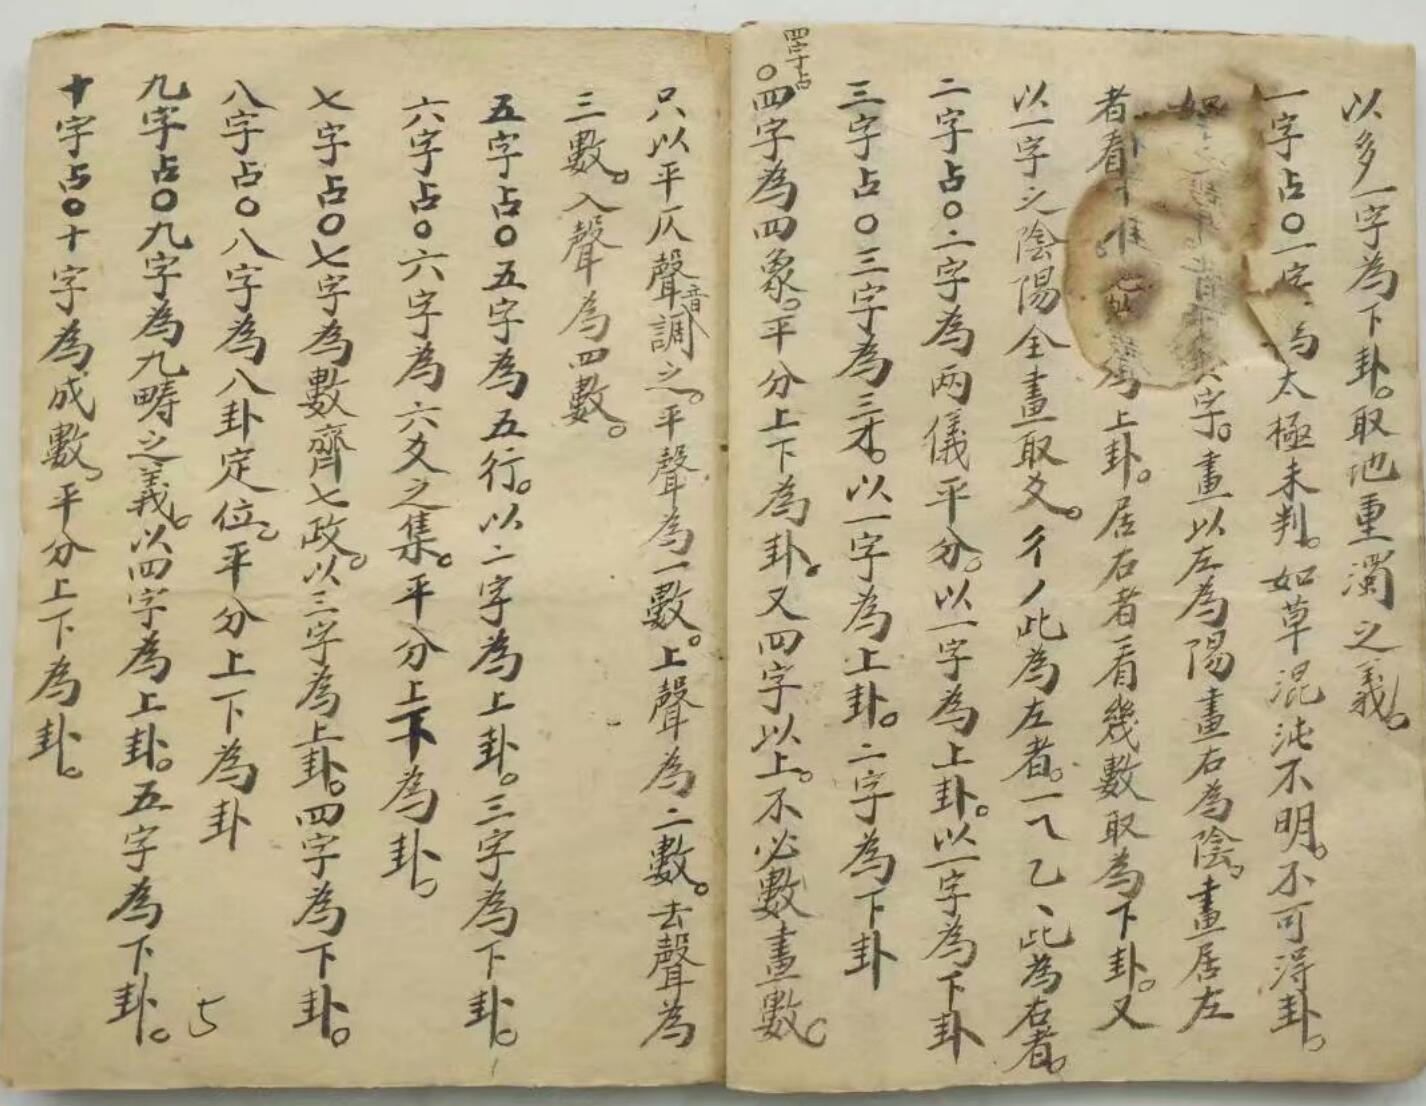 以多一字為下卦。取地重濁之義。
一字占〇一字為太極未判。如草混沌不明。不可得卦。
如字。畫以左為陽畫右為陰。畫居左
者看為上卦。居右者看幾數取為下卦。又
以一字之陰陽全畫取爻。彳丿此為左者。一乁乙丶此為右者。
二字占〇二字為兩儀平分。以一字為上卦。以一字為下卦
三字占〇三字為三才。以一字為上卦。二字為下卦
四字占
〇四字為四象。平分上下為卦。又四字以上。不必數畫數。
只以平仄聲音調之。平聲為一數。上聲為二數。去聲為
三數。入聲為四數。
五字占〇五字為五行。以二字為上卦。三字為下卦。
六字占〇六字為六爻之集。平分上下為卦。
七字占〇七字為數齊七政。以三字為上卦。四字為下卦。
八字占〇八字為八卦定位。平分上下為卦
九字占〇九字為九疇之義。以四字為上卦。五字為下卦。
十字占〇十字為成數。平分上下為卦。
5